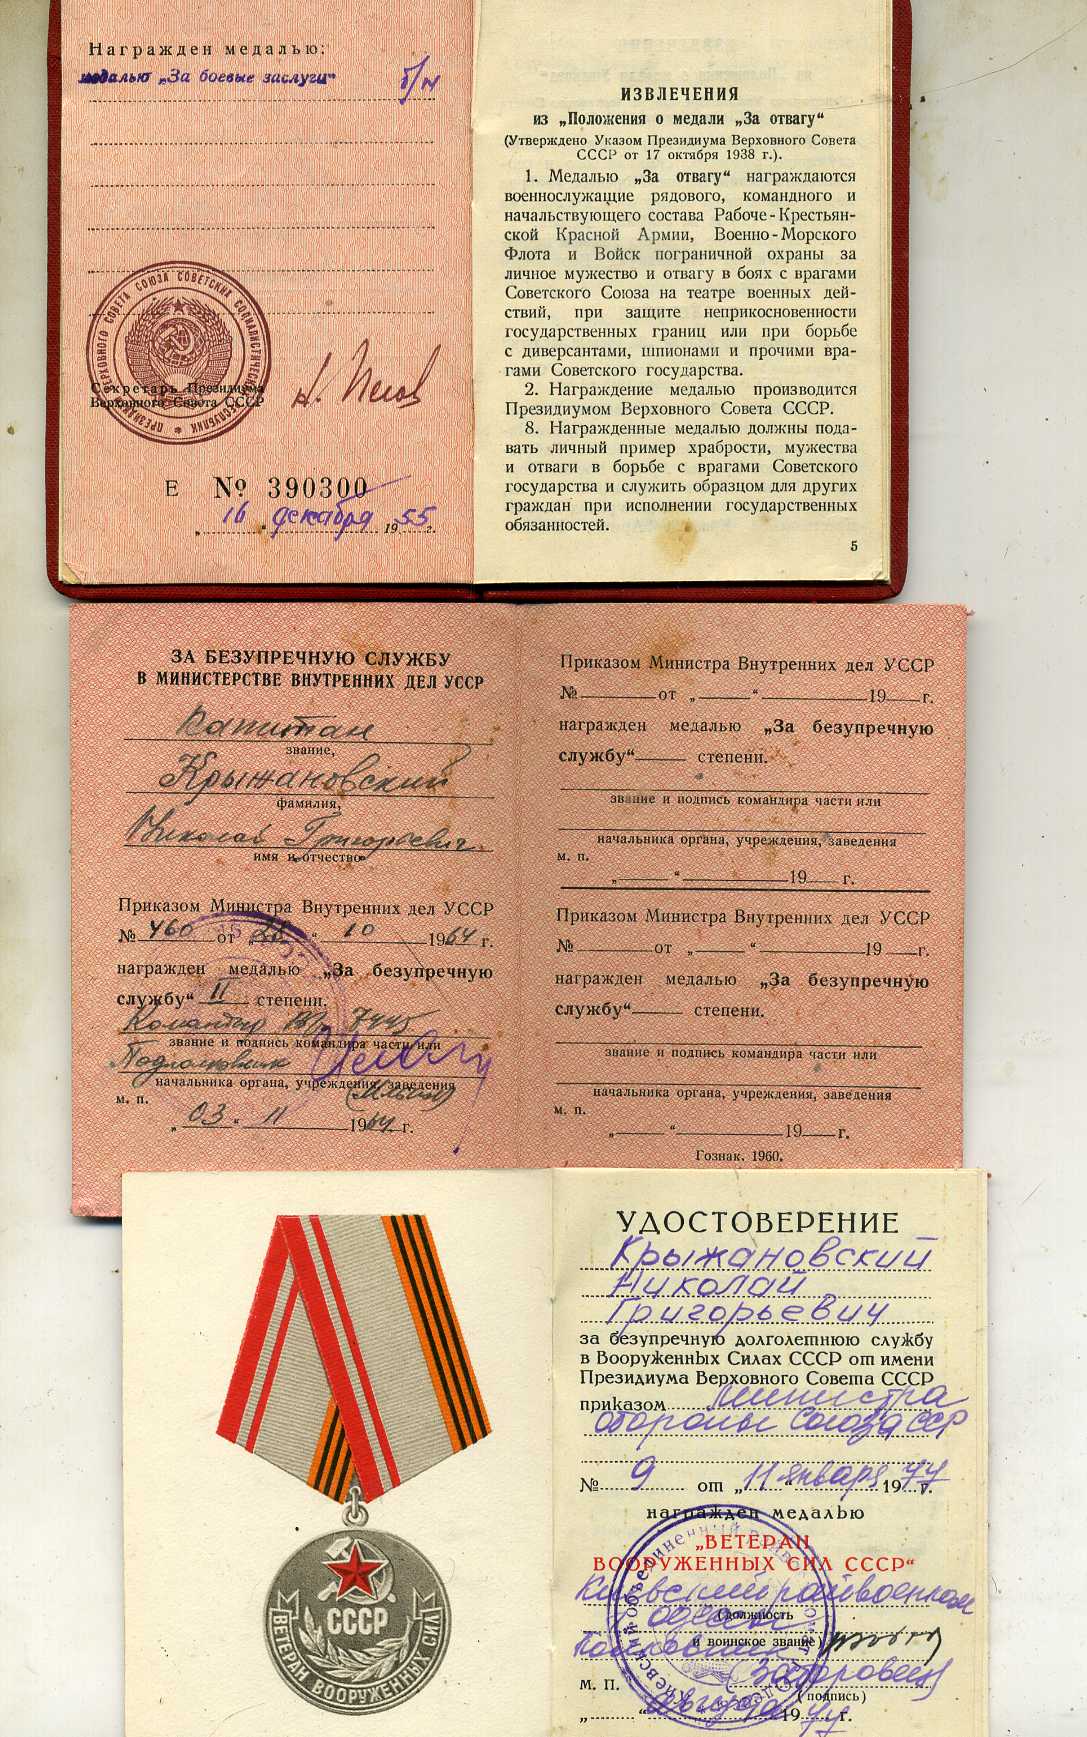 Награжден медалью:
медалью „За боевые заслуги“ б/н
Секретарь Президиума
Верховного Совета СССР
Е № 390300
„16“ декабря 1955 г.
ИЗВЛЕЧЕНИЯ
из „Положения о медали „За отвагу“
(Утверждено Указом Президиума Верховного Совета
СССР от 17 октября 1938 г.).
1. Медалью „За отвагу“ награждаются
военнослужащие рядового, командного и
начальствующего состава Рабоче-Крестьян-
ской Красной Армии, Военно-Морского
Флота и Войск пограничной охраны за
личное мужество и отвагу в боях с врагами
Советского Союза на театре военных дей-
ствий, при защите неприкосновенности
государственных границ или при борьбе
с диверсантами, шпионами и прочими вра-
гами Советского государства.
2. Награждение медалью производится
Президиумом Верховного Совета СССР.
8. Награжденные медалью должны пода-
вать личный пример храбрости, мужества
и отваги в борьбе с врагами Советского
государства и служить образцом для других
граждан при исполнении государственных
обязанностей.
5
ЗА БЕЗУПРЕЧНУЮ СЛУЖБУ
В МИНИСТЕРСТВЕ ВНУТРЕННИХ ДЕЛ УССР
капитан
звание,
Крыжановский
фамилия,
Николай Григорьевич
имя и отчество
Приказом Министра Внутренних дел УССР
№ 460 от „26“ 10 1964 г.
награжден медалью „За безупречную
службу“ II степени.
Командир в/ч 7445
звание и подпись командира части или
Подполковник
начальника органа, учреждения, заведения
м. п.
„03“ 11 1964 г.
Приказом Министра Внутренних дел УССР
№ от „ “ 19 г.
награжден медалью „За безупречную
службу“ степени.
звание и подпись командира части или
начальника органа, учреждения, заведения
м. п.
„ “ 19 г.
Приказом Министра Внутренних дел УССР
№ от „ “ 19 г.
награжден медалью „За безупречную
службу“ степени.
звание и подпись командира части или
начальника органа, учреждения, заведения
м. п.
„ “ 19 г.
Гознак. 1960.
СССР
ВЕТЕРАН ВООРУЖЕННЫХ СИЛ
УДОСТОВЕРЕНИЕ
Крыжановский
Николай
Григорьевич
за безупречную долголетнюю службу
в Вооруженных Силах СССР от имени
Президиума Верховного Совета СССР
приказом министра
обороны Союза ССР
№ 9 от „11“ января 1977 г.
награжден медалью
„ВЕТЕРАН
ВООРУЖЕННЫХ СИЛ СССР“
Киевский райвоенком
(должность
Полковник и воинское звание)
м. п.
(подпись)
„ “ августа 1977 г.